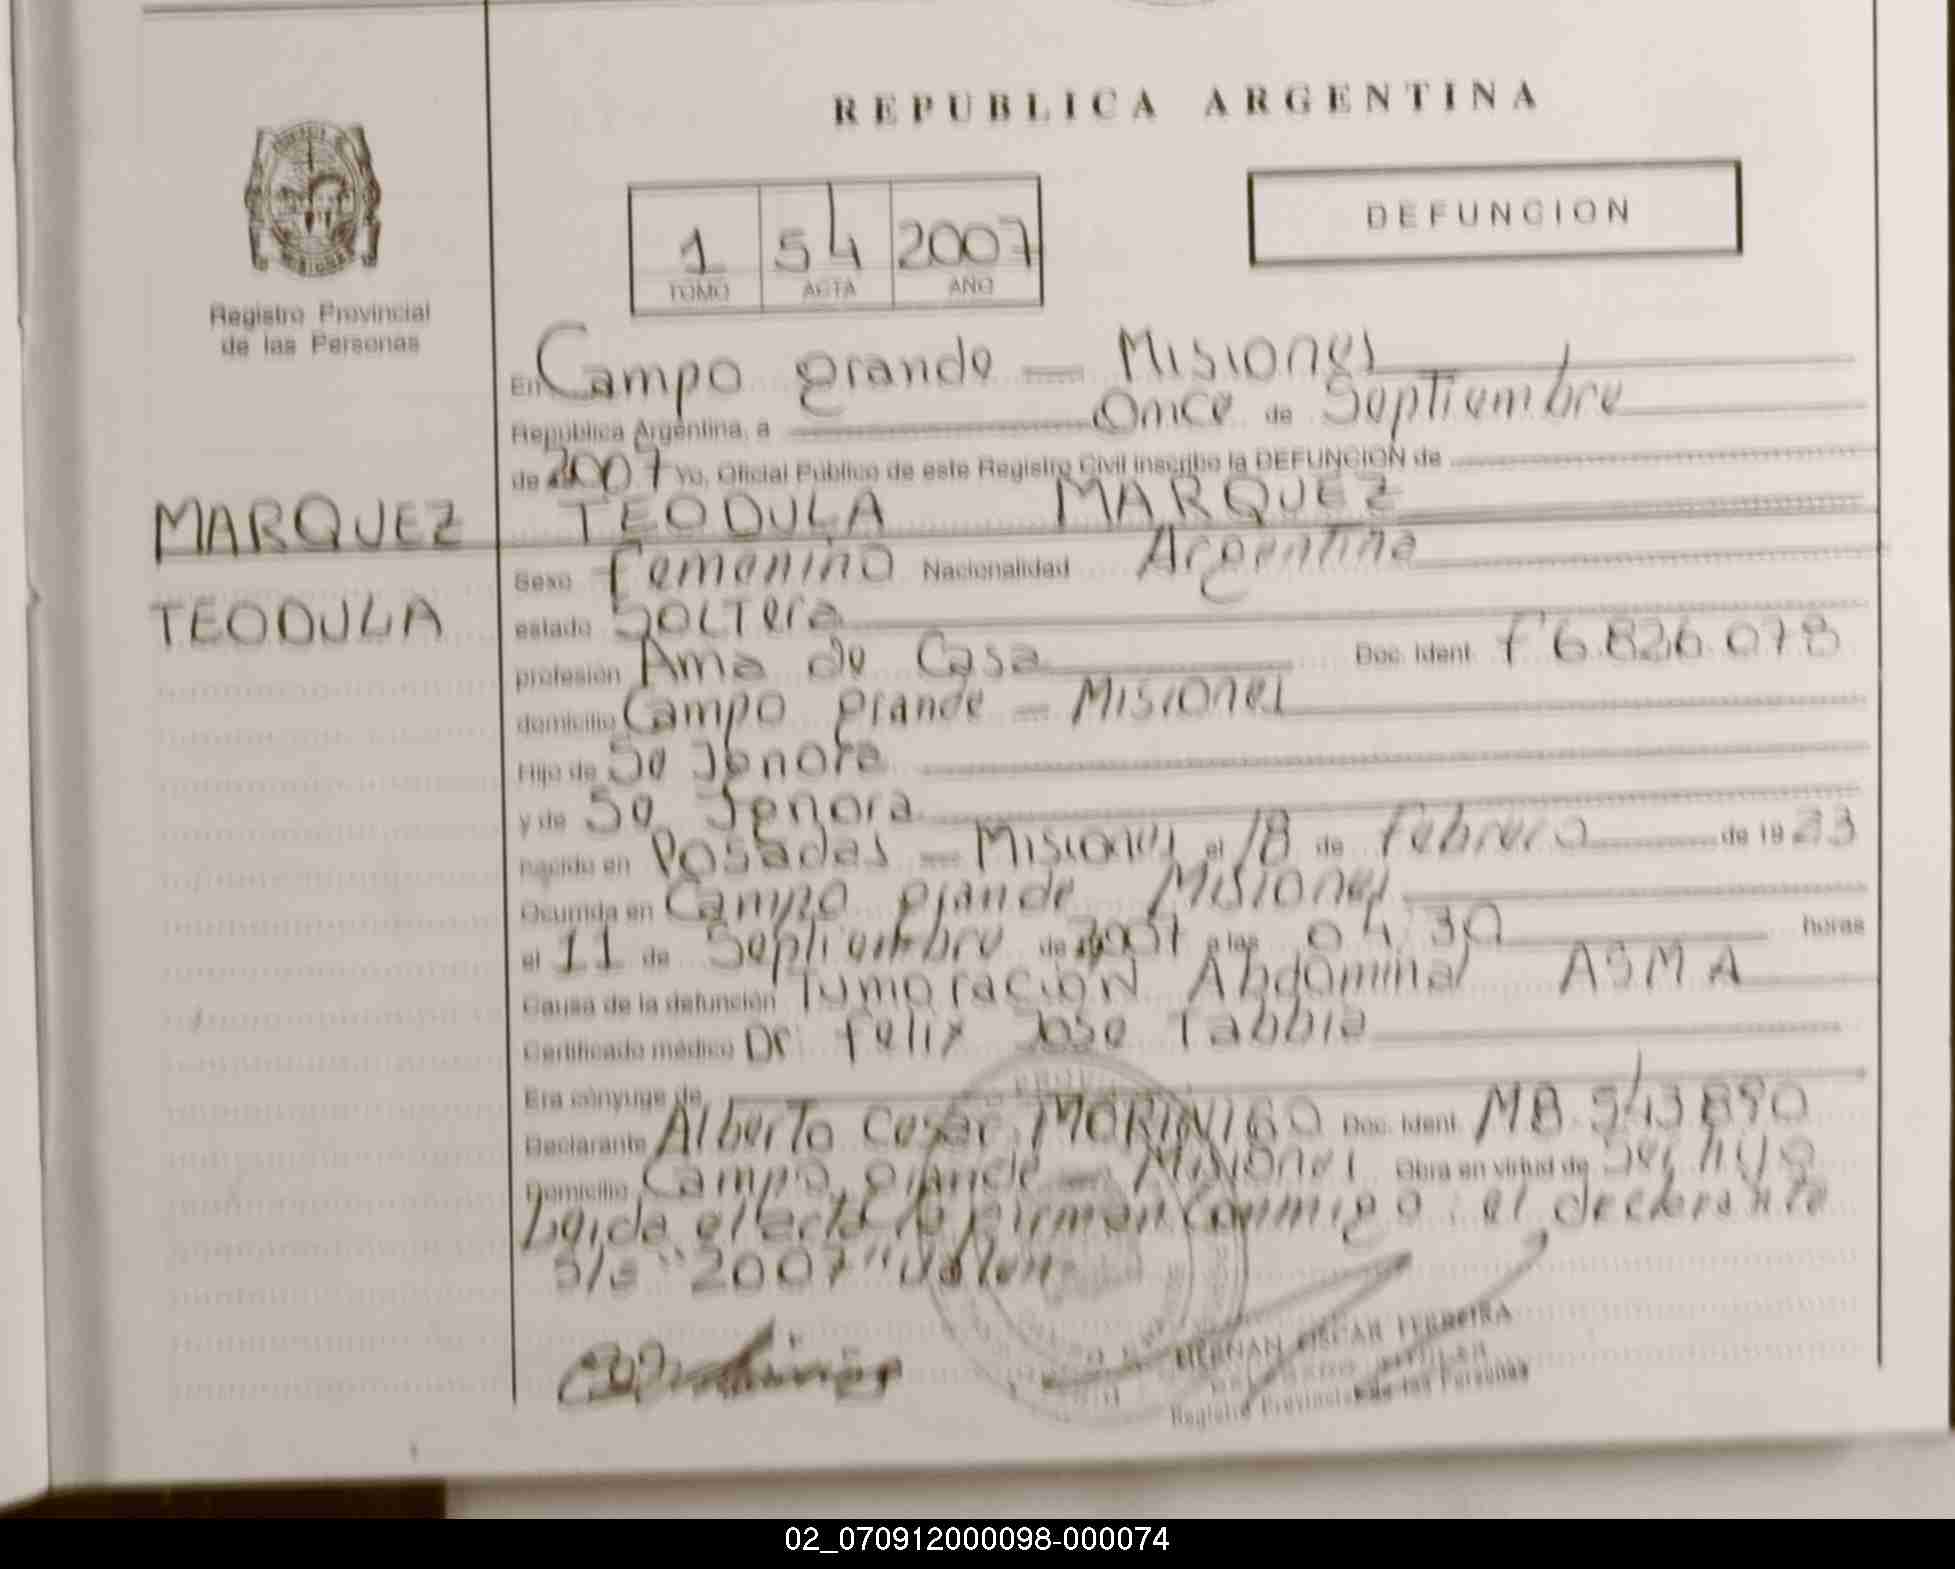 REPUBLICA ARGENTINA
DEFUNCION
1 54 2007
TOMO ACTA AÑO
Registro Provincial
de las Personas
MARQUEZ
TEODULA
En Campo grande — Misiones
República Argentina, a Once de Septiembre
de 2007 Yo, Oficial Público de este Registro Civil inscribo la DEFUNCION de
TEODULA MARQUEZ
Sexo Femenino Nacionalidad Argentina
estado Soltera
profesión Ama de Casa Doc. Ident. F 6.826.078
domicilio Campo grande — Misiones
Hijo de Se Ignora
y de Se Ignora
nacido en Posadas — Misiones el 18 de Febrero de 19 33
Ocurrida en Campo grande Misiones
el 11 de Septiembre de 2007 a las 04,30 horas
Causa de la defunción Tumoración Abdominal ASMA
Certificado médico Dr Felix Jose Tabbia
Era cónyuge de
Declarante Alberto Cesar MORINIGO Doc. Ident. M8.543.890
Domicilio Campo grande — Misiones Obra en virtud de
Leida el acta la firman Conmigo el declarante
s/e "2007" Valen
HERNAN OSCAR FERREIRA
Registro Provincial de las Personas
02_070912000098-000074